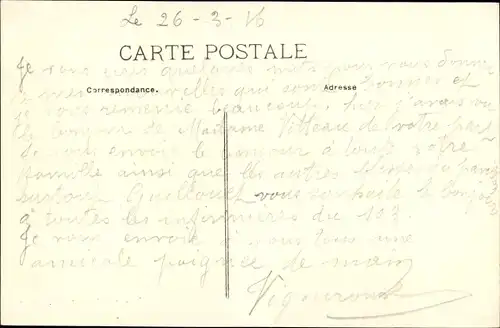 Le 26 - 3 - 16
CARTE POSTALE
Je vous écris quelques mots pour vous donner
Correspondance.
Adresse
mes nouvelles qui sont bonnes et
je vous remercie beaucoup. hier j'avais eu
le bonjour de Madame Vitteau de votre part
Je vous envoie le bonjour à toute votre
famille ainsi que les autres
surtout Guillouet vous souhaite le bonjour
à toutes les infirmières du 103.
Je vous envoie à vous tous une
amicale poignée de main
Vigouroux